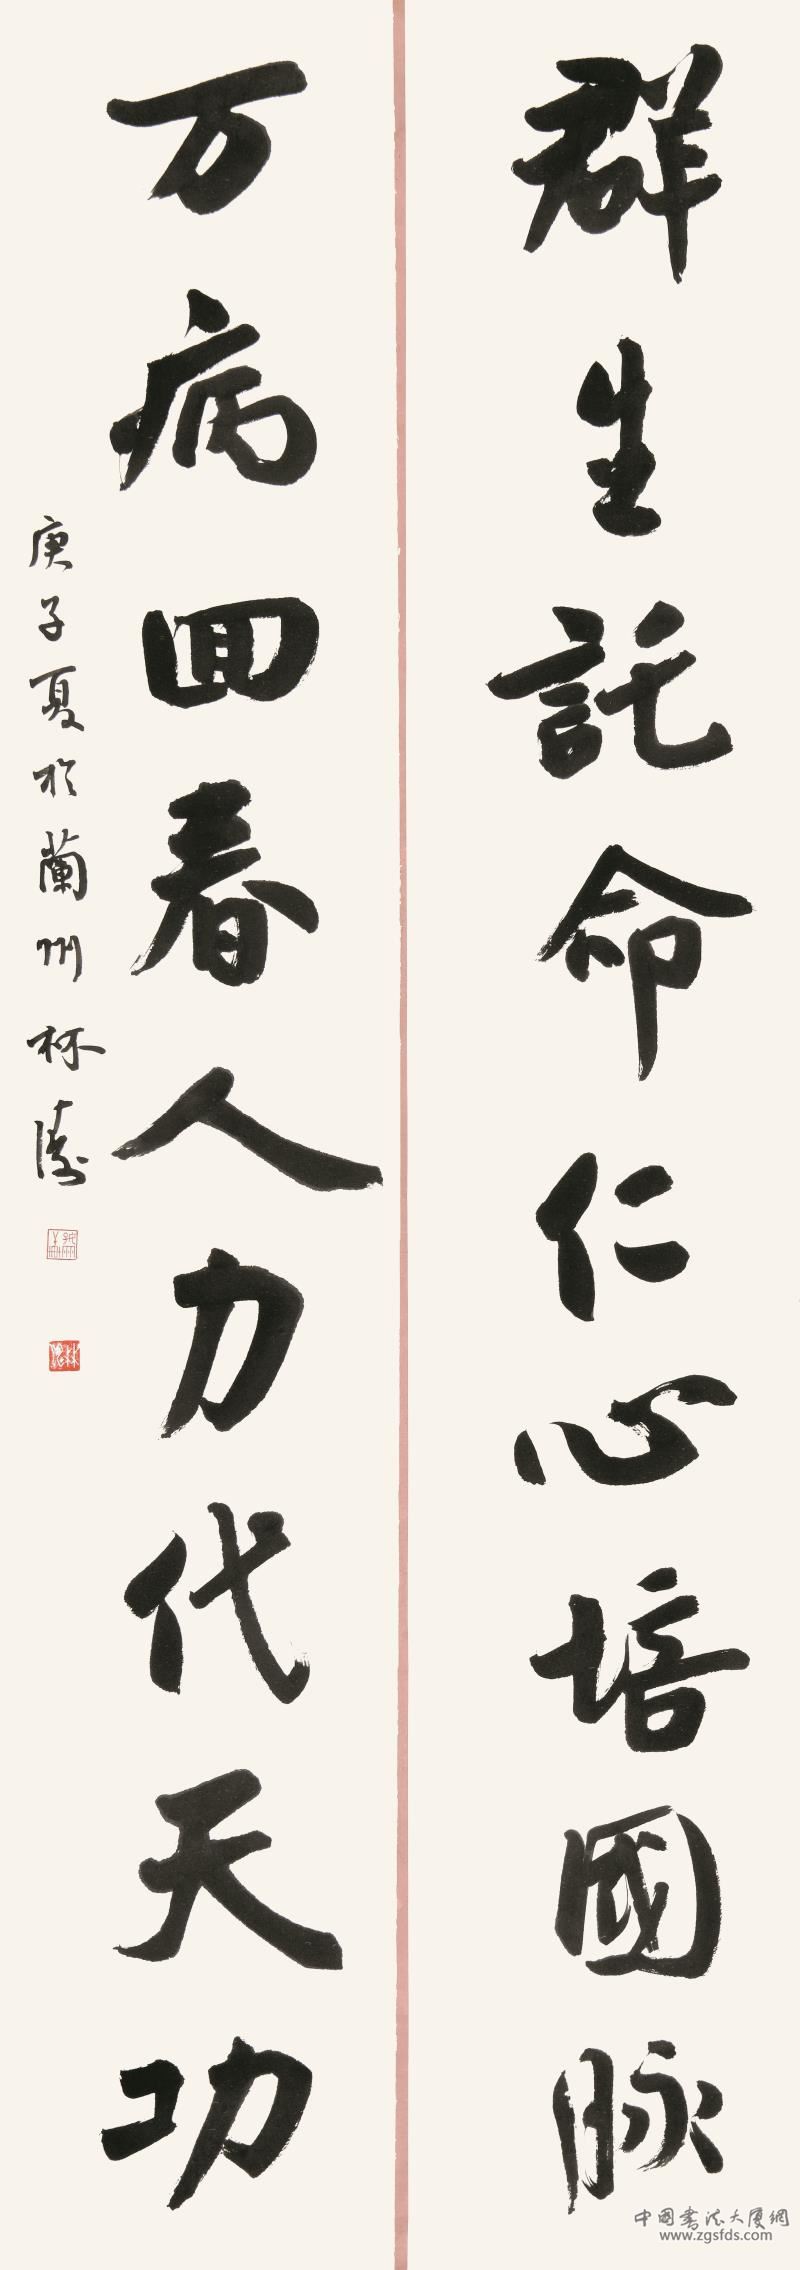 群生託命仁心培國脉
万病回春人力代天功
庚子夏於蘭州林涛
中国书法大厦網
www.zgsfds.com